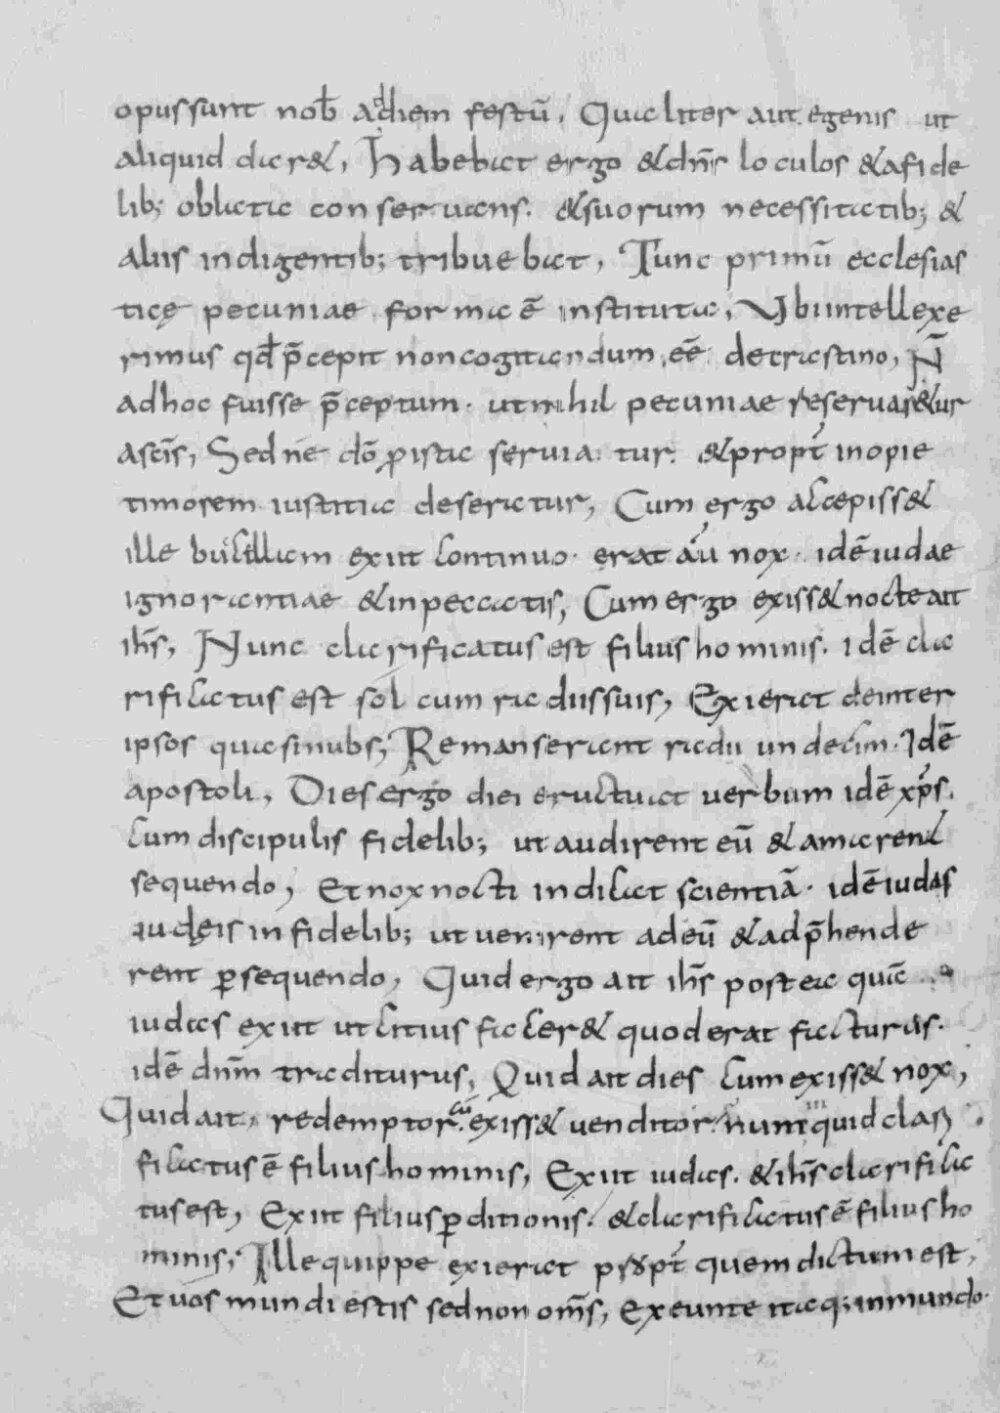 opus sunt nob̅ ad diem festū, Qualiter aut egenis ut
aliquid dar&, Habebat ergo & dn̄s loculos & a fide
lib; oblata conseruans. & suorum necessitatib; &
aliis indigentib; tribuebat, Tunc primū ecclesias
ticę pecuniae forma ē instituta, Vbi intellexe
rimus qd̄ p̄cepit non cogitandum eē de crastino, N̄
ad hoc fuisse p̄ceptum. ut nihil pecuniae reseruar&ur
a sc̄is, Sed ne dō ꝓ ista seruiatur. & propt̄ inopie
timorem iustitia deseratur, Cum ergo accepiss&
ille bucillam exiit continuo. erat aū nox. idē iudae
ignorantiae & in peccatis, Cum ergo exiss& nocte ait
ih̄s, Nunc clarificatus est filius hominis. idē cla
rificatus est sol cum radiis suis, Exierat de inter
ipsos quasi nubs; Remanserant radii undecim. Idē
apostoli, Dies ergo diei eructuat uerbum idē xp̄s.
cum discipulis fidelib; ut audirent eū & amarent
sequendo, Et nox nocti indicat scientiā. idē iudas
iudęis infidelib; ut uenirent ad eū & adp̄hende
rent ꝑsequendo, Quid ergo ait ih̄s postea quā
iudas exiit ut citius facer& quod erat facturus.
idē dn̄m traditurus, Quid ait dies cum exiss& nox,
Quid ait, redemptor. cū exiss& uenditor. nunc inquid cla
ficatus ē filius hominis, Exiit iudas. & ih̄s clarifica
tus est, Exiit filius ꝑditionis. & clarificatus ē filius ho
minis; Ille quippe exierat propt̄ quem dictum est,
Et uos mundi estis sed non om̄s, Exeunte itaq; inmundo.